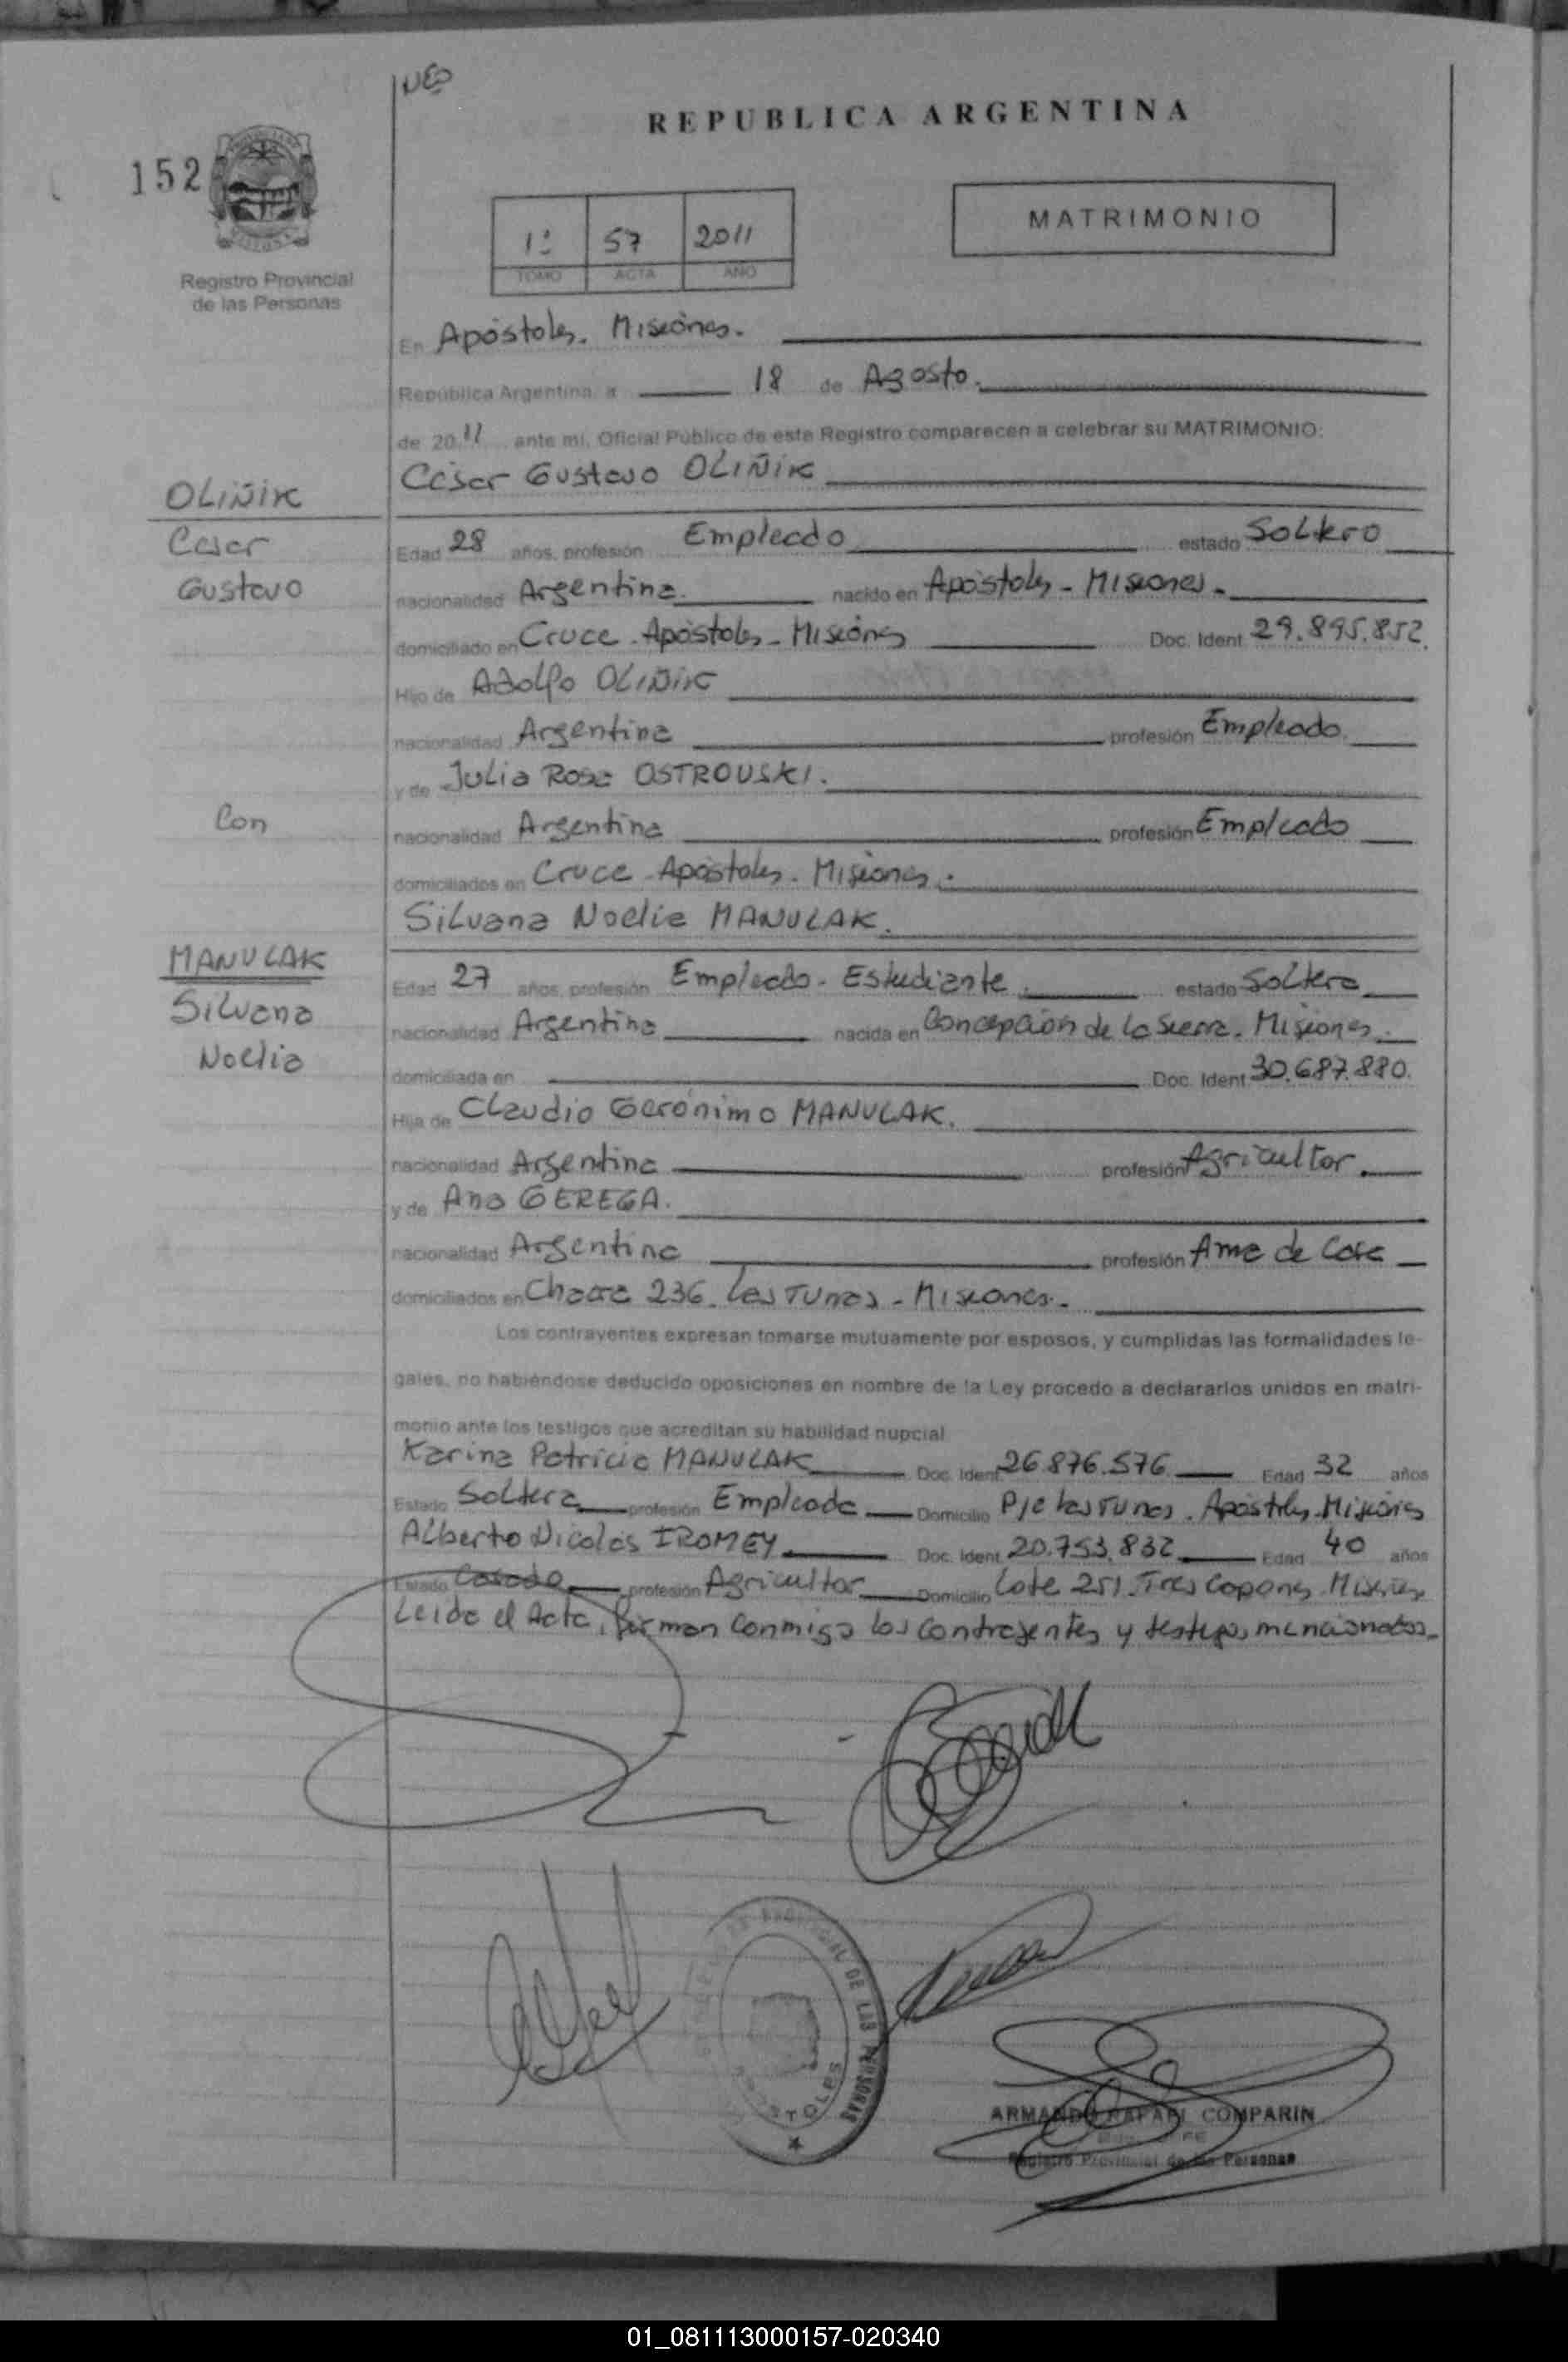 REPUBLICA ARGENTINA
152
1º 57 2011
TOMO ACTA AÑO
MATRIMONIO
Registro Provincial
de las Personas
En Apóstoles. Misiones.
República Argentina, a 18 de Agosto.
de 2011 ante mí, Oficial Público de este Registro comparecen a celebrar su MATRIMONIO:
César Gustavo OLIÑIK
OLIÑIK
Cesar
Gustavo
Edad 28 años, profesión Empleado estado Soltero
nacionalidad Argentina. nacido en Apóstoles - Misiones.
domiciliado en Cruce - Apóstoles - Misiones Doc. Ident 29.895.852.
Hijo de Adolfo OLIÑIK
nacionalidad Argentina profesión Empleado.
y de Julia Rosa OSTROUSKI.
Con
nacionalidad Argentina profesión Empleado
domiciliados en Cruce - Apóstoles - Misiones.
Silvana Noelia MANULAK.
MANULAK
Silvana
Noelia
Edad 27 años, profesión Empleado - Estudiante. estado Soltera
nacionalidad Argentina nacida en Concepción de La Sierra. Misiones.
domiciliada en Doc. Ident 30.687.880.
Hija de Claudio Gerónimo MANULAK.
nacionalidad Argentina profesión Agricultor.
y de Ana GEREGA.
nacionalidad Argentina profesión Ama de Casa
domiciliados en Chacra 236. Las Tunas - Misiones.
Los contrayentes expresan tomarse mutuamente por esposos, y cumplidas las formalidades le-
gales, no habiéndose deducido oposiciones en nombre de la Ley procedo a declararlos unidos en matri-
monio ante los testigos que acreditan su habilidad nupcial
Karina Patricia MANULAK Doc. Ident 26.876.576 Edad 32 años
Estado Soltera profesión Empleada Domicilio Pje Las Tunas. Apóstoles. Misiones
Alberto Nicolás IROMEY Doc. Ident. 20.753.832 Edad 40 años
Estado Casado profesión Agricultor Domicilio Lote 251 Tres Capones Misiones
Leída el Acta, firman conmigo los contrayentes y testigos mencionados.
PROVINCIAL DE LAS PERSONAS
APOSTOLES
ARMANDO RAFAEL COMPARIN
Registro Provincial de las Personas
01_081113000157-020340